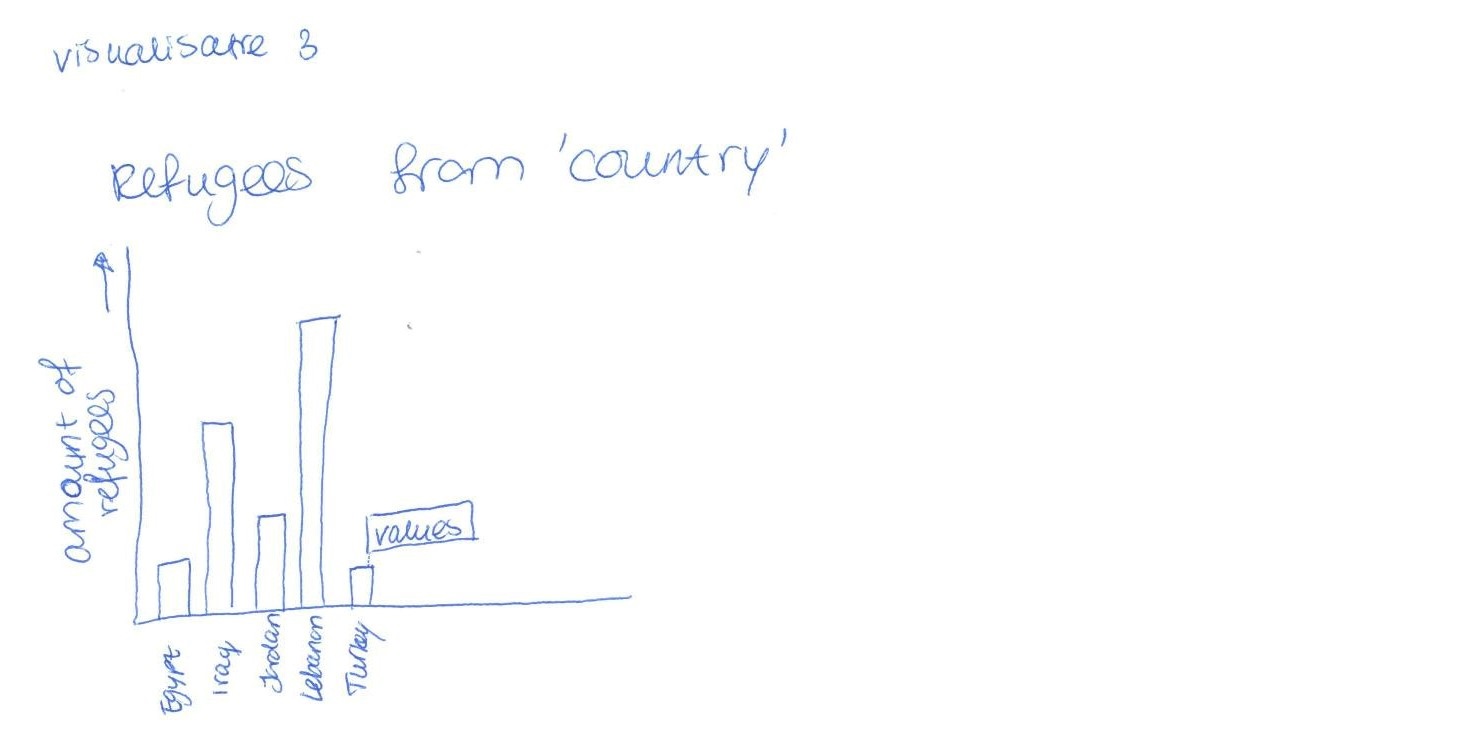 visualisatie 3
Refugees from 'country'
amount of
refugees
values
Egypt
Iraq
Jordan
Lebanon
Turkey